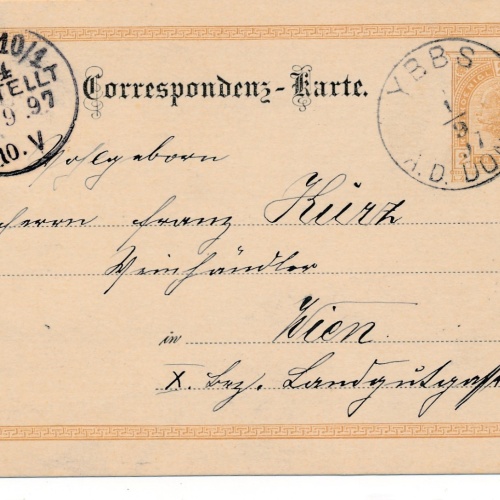 10/1
4
TELLT
9 97
10. V
Correspondenz-Karte.
YBBS
1/9
97
A.D. DON
Wolgeborn
Herrn Franz Kurz
Weinhändler
in Wien
X. Bez. Landgutgasse